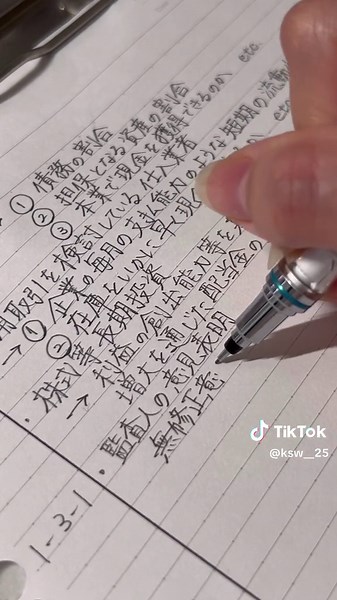 ① 債務の割合
② 担保となる資産の割合
③ 本業で現金を獲得できるのか etc.
用取引を検討している仕入業者
→ ① 企業の毎月の支払能力のような短期の流動
② 在庫をいかに早く現
株式等長期投資
→ 利益の創出能力等を
増大を通じた配当金の
・監査人の意見表明
無修正意
1-3-1
TikTok
@ksw__25